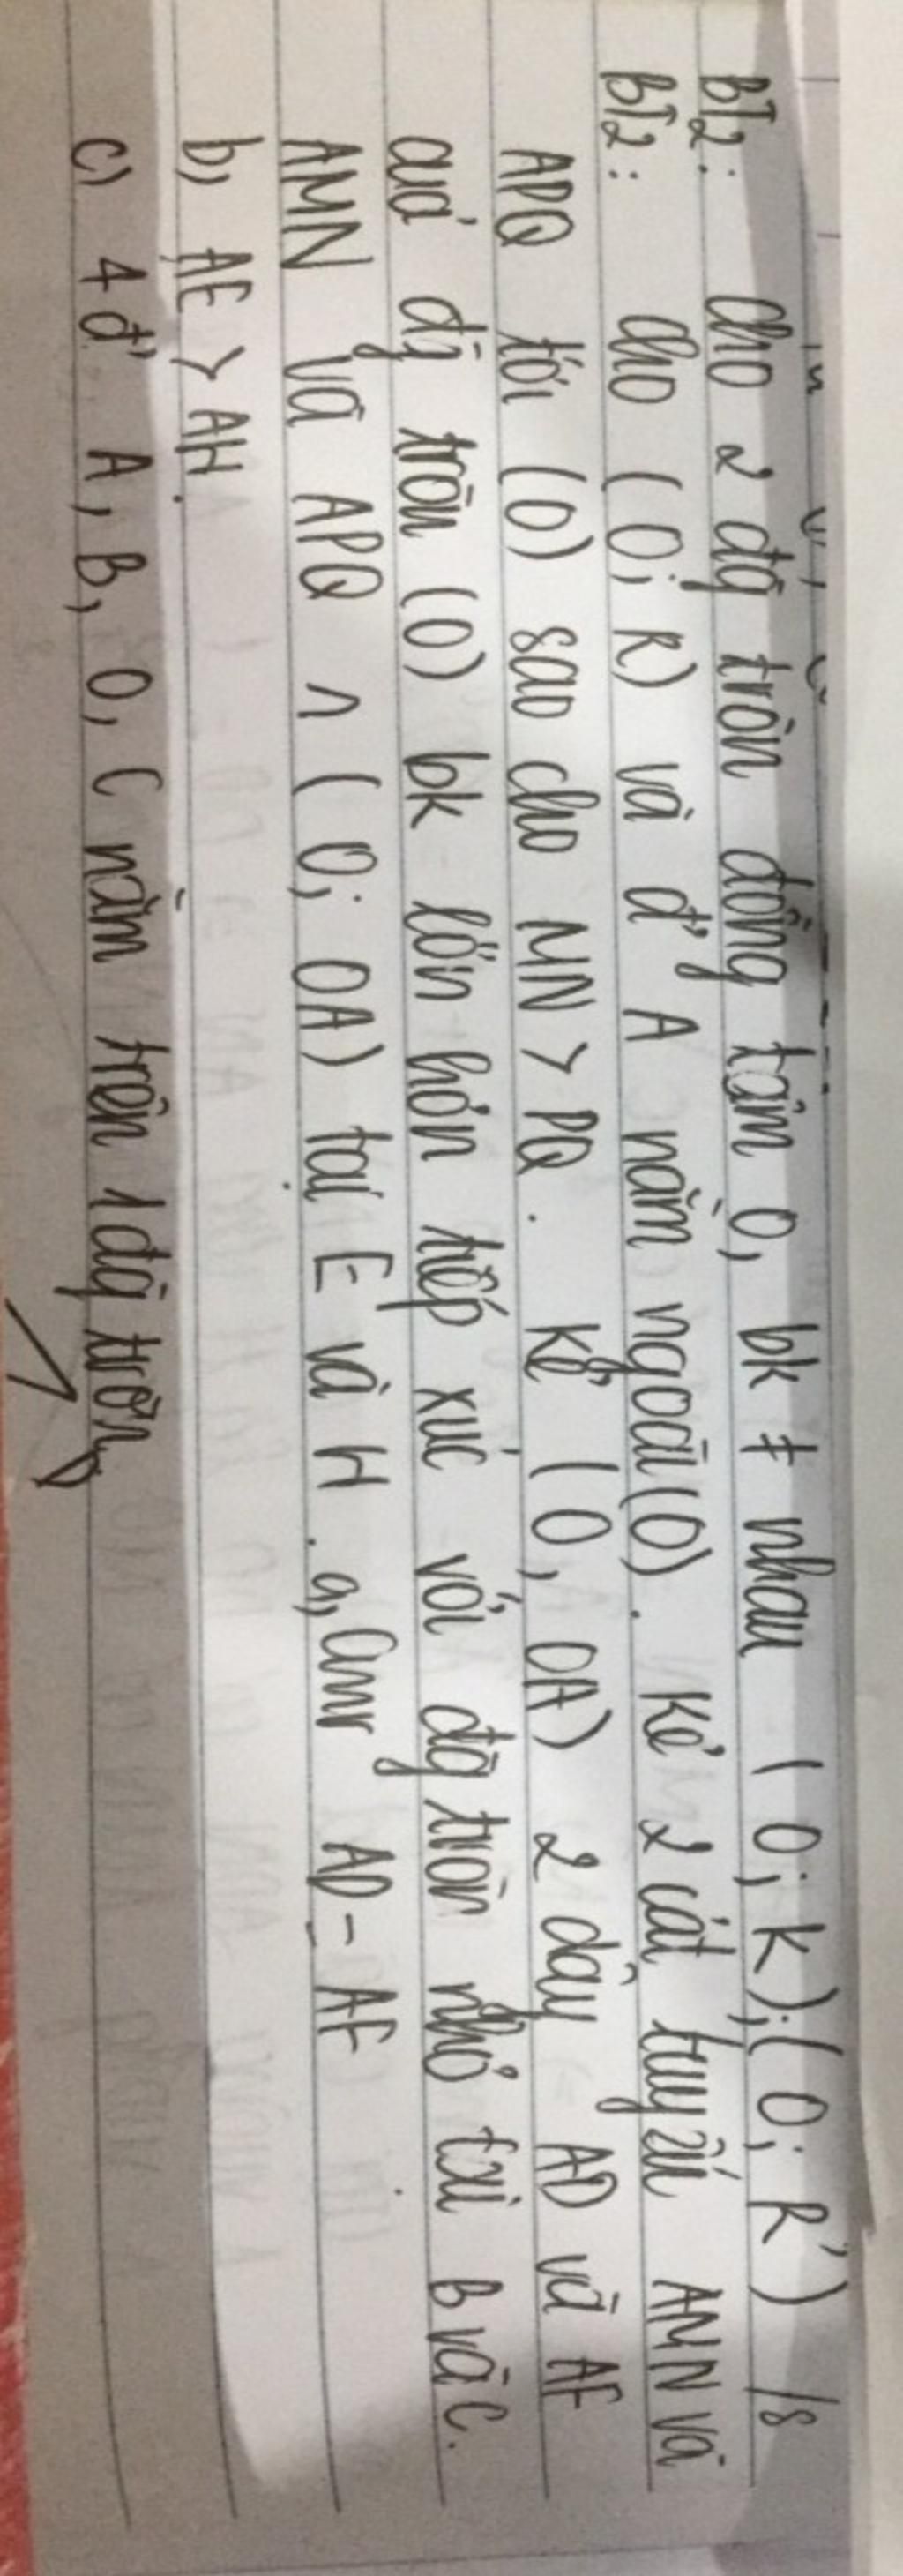 BT2: cho 2 đg tròn đồng tâm O, bk ≠ nhau (O; K); (O; R')
BT2: cho (O; R) và đ' A nằm ngoài (O). Kẻ 2 cát tuyến AMN và
APQ tới (O) sao cho MN > PQ. Kẻ (O, OA) 2 dây AD và AF
quả đg tròn (O) bk lớn hơn tiếp xúc với đg tròn nhỏ tại B và C.
AMN và APQ ∩ (O; OA) tại E và H. a, Cmr AD = AF
b, AE > AH.
c) 4 đ' A, B, O, C nằm trên 1 đg tròn